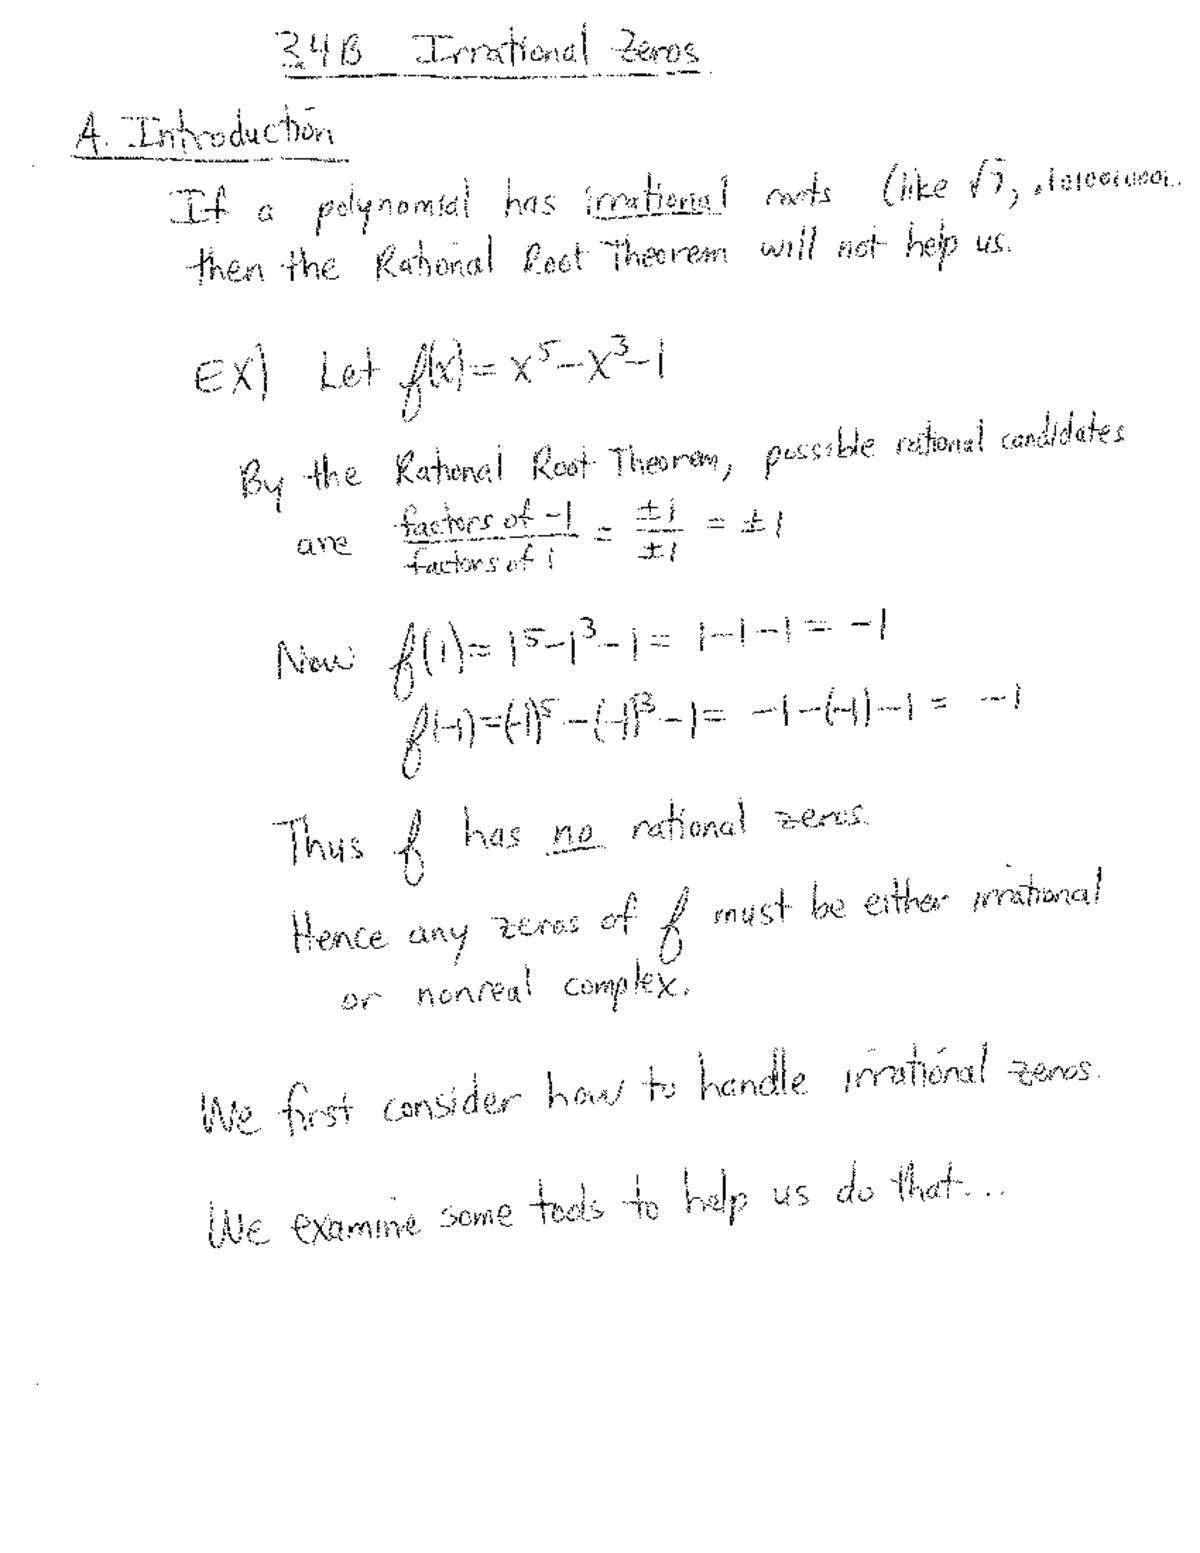 3.4B Irrational Zeros
A. Introduction
If a polynomial has irrational roots (like √7, .1010010001...
then the Rational Root Theorem will not help us.
EX) Let f(x) = x⁵ - x³ - 1
By the Rational Root Theorem, possible rational candidates
are factors of -1 / factors of 1 = ±1 / ±1 = ±1
Now f(1) = 1⁵ - 1³ - 1 = 1 - 1 - 1 = -1
f(-1) = (-1)⁵ - (-1)³ - 1 = -1 - (-1) - 1 = -1
Thus f has no rational zeros.
Hence any zeros of f must be either irrational
or nonreal complex.
We first consider how to handle irrational zeros.
We examine some tools to help us do that...